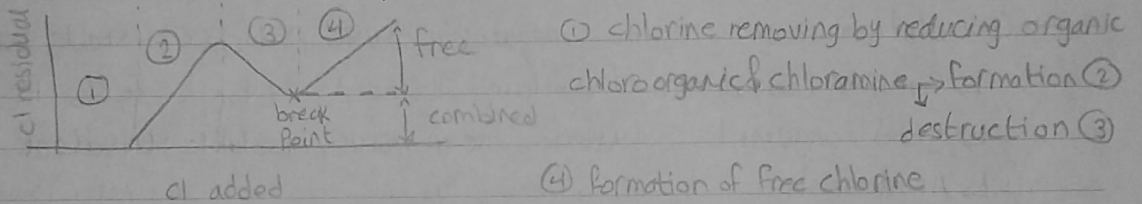 cl residual
①
②
③
④
free
break
Point
combined
cl added
① chlorine removing by reducing organic
chloroorganic & chloramine → formation ②
destruction ③
④ formation of free chlorine